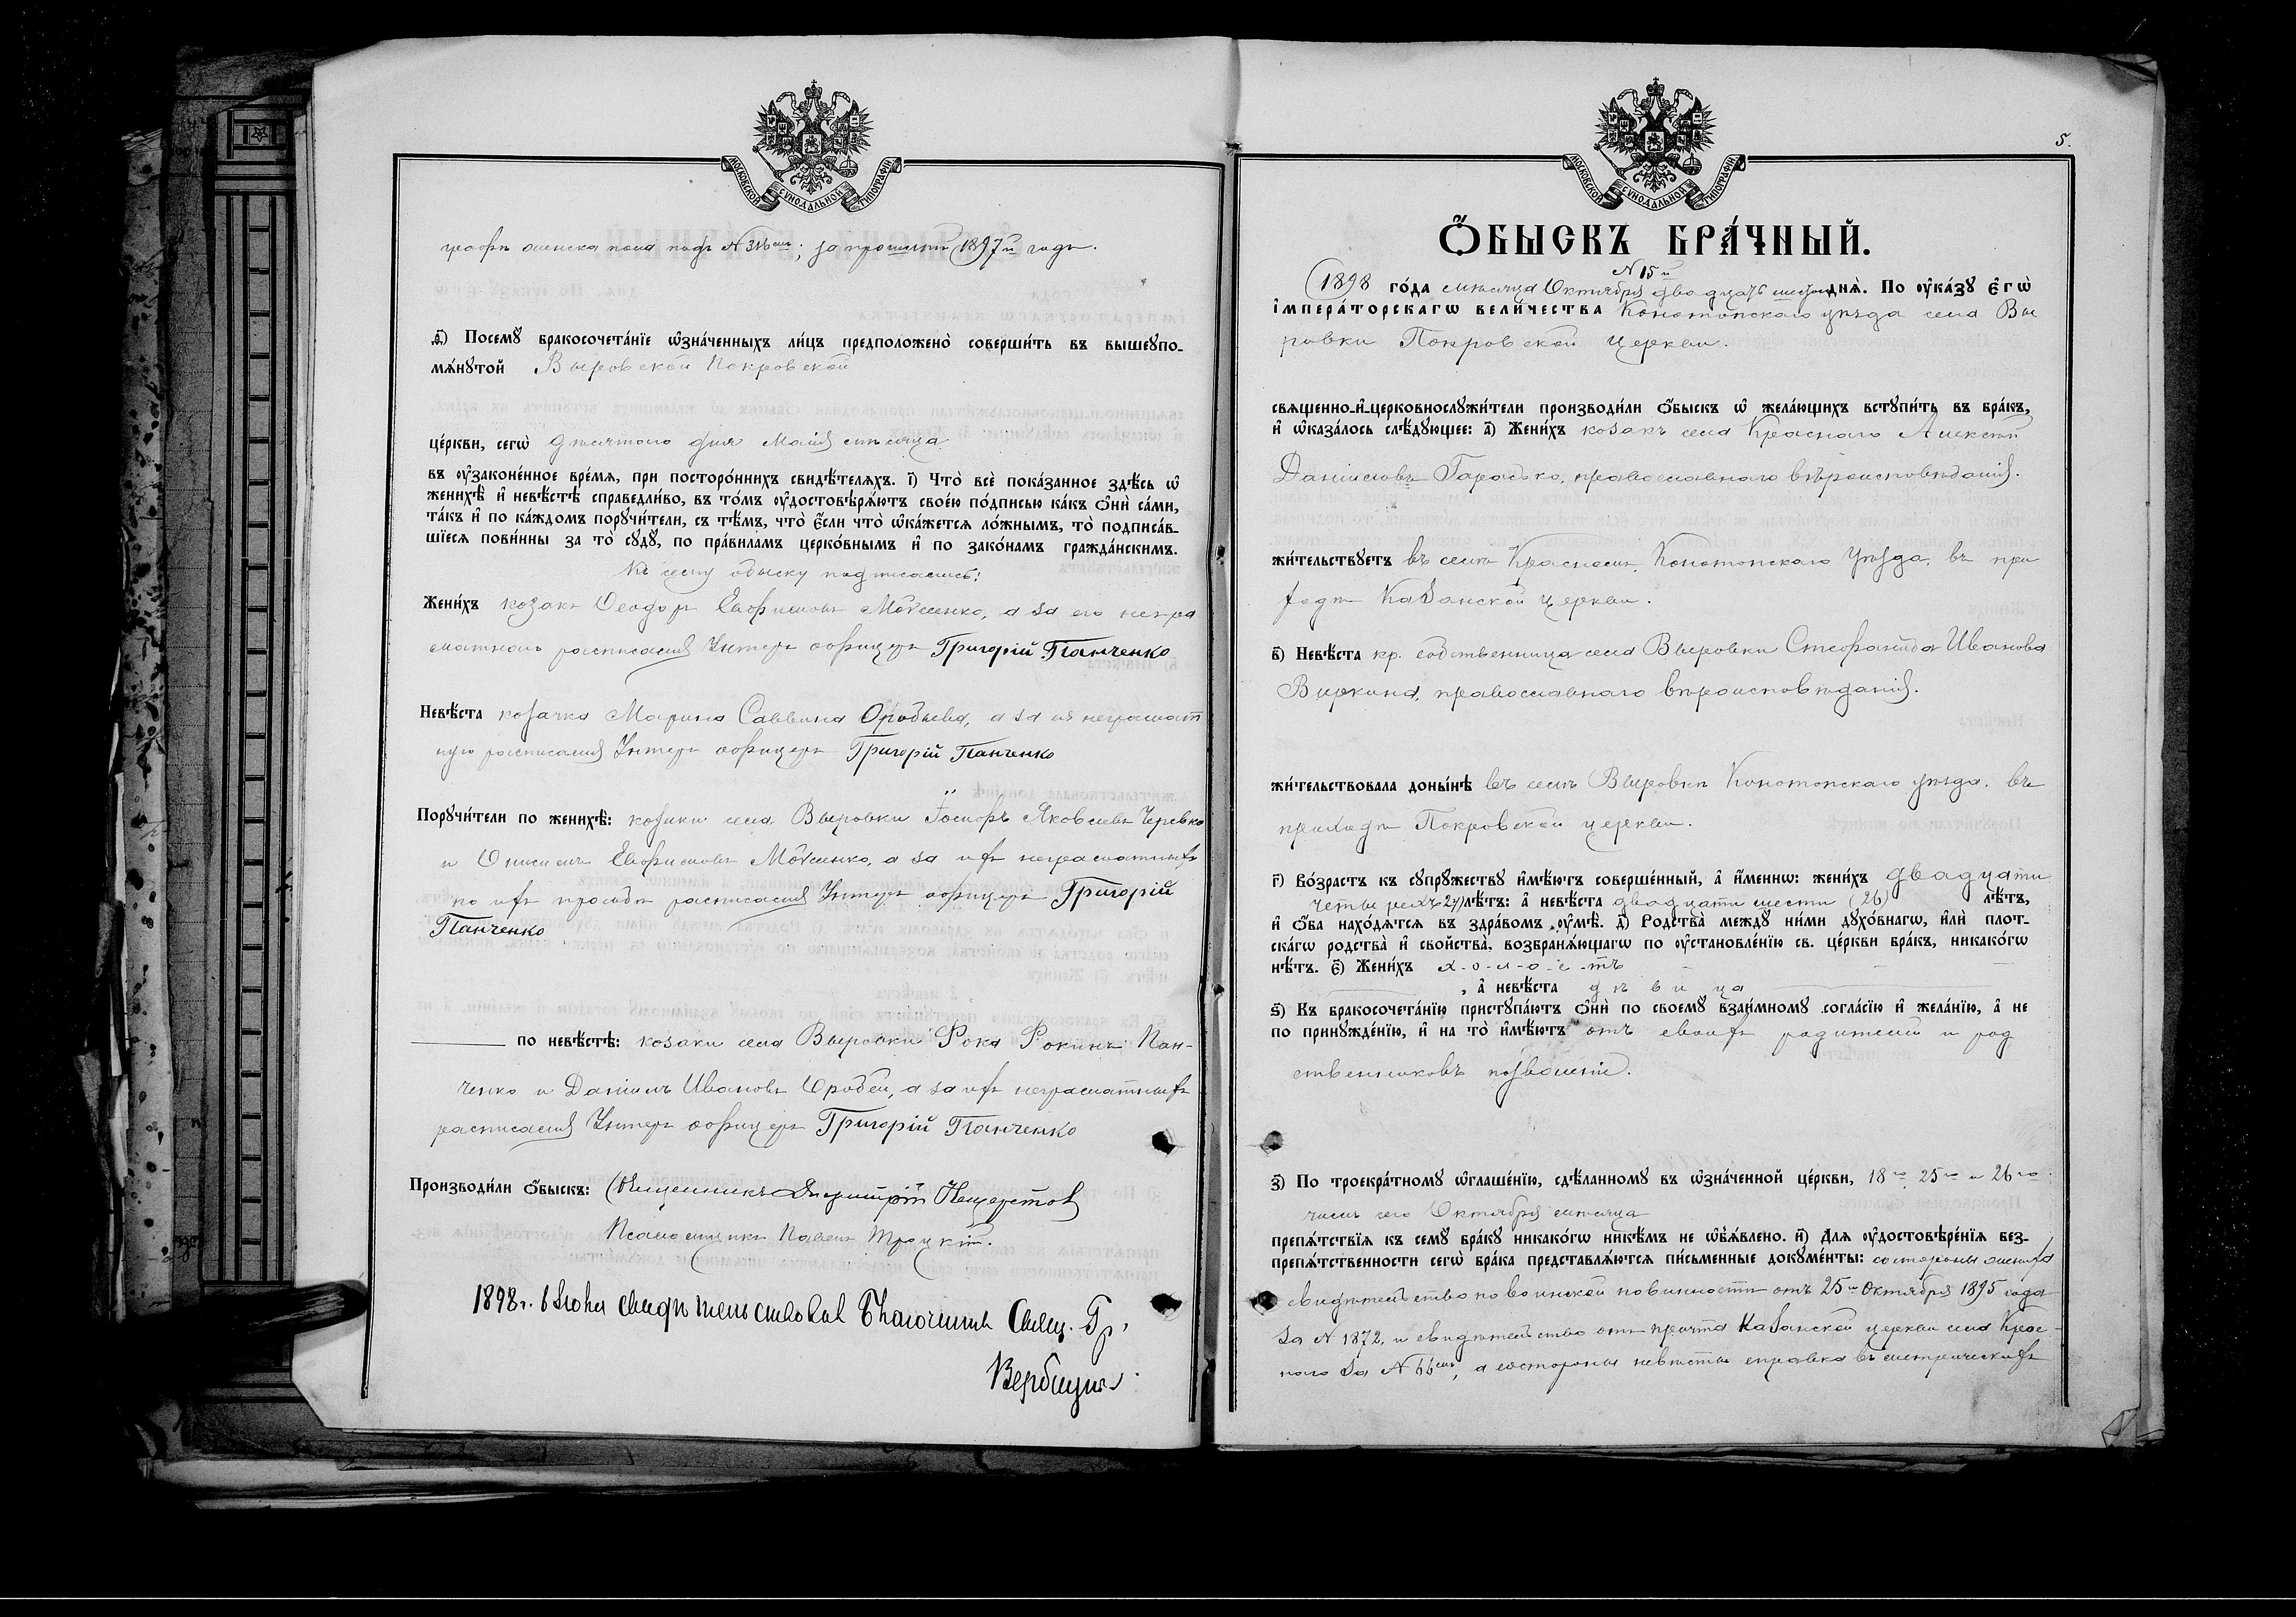 МОСКОВСКОЙ СѴНОДАЛЬНОЙ ТИПОГРАФІИ
за прошлый 1897й годъ.
ѳ҃) Посемꙋ бракосочета́нїе ѡ҆зна́ченныхъ ли́цъ предположено̀ соверши́ть въ вышеꙋпо-
мѧ́нꙋтой Выровской Покровской
це́ркви, сегѡ̀ девятого дня Маія мѣсяца
въ ᲂу҆законе́нное вре́мѧ, при посторо́ннихъ свидѣ́телѧхъ. і҃) Что̀ всѐ пока́занное здѣ́сь ѡ҆
женихѣ̀ и҆ невѣ́стѣ справедли́во, въ то́мъ ᲂу҆достовѣрѧ́ютъ свое́ю по́дписью ка́къ ѻ҆нѝ са́ми,
та́къ и҆ по ка́ждомъ порꙋчи́тели, съ тѣ́мъ, что̀ є҆́сли что̀ ѡ҆ка́жетсѧ ло́жнымъ, то̀ подписа́в-
шїесѧ пови́нны за то̀ сꙋдꙋ̀, по пра́виламъ церко́внымъ и҆ по зако́намъ гражда́нскимъ.
Къ сему обыску подписались:
Жени́хъ козакъ Ѳеодоръ Евфимовъ, а за его негра
мотнаго росписался Унтеръ офицеръ Григорій Панченко
Невѣ́ста козачка Марина Саввина Оробьева, а за ея неграмот
ную росписался Унтеръ офицеръ Григорій Панченко
Порꙋчи́тели по женихѣ̀: козаки села Выровки Іосифъ Яковлевъ Черевко
и Евфимовъ, а за ихъ неграмотныхъ
по ихъ просьбѣ росписался Унтеръ офицеръ Григорій
Панченко
по невѣ́стѣ: козаки села Выровки Фока Фокинъ Пан-
ченко и Даніилъ Ивановъ Оробей, а за ихъ неграмотныхъ
росписался Унтеръ офицеръ Григорій Панченко
Производи́ли ѻ҆́быскъ: Священникъ Димитрій
Псаломщикъ Павелъ Троцкій.
1898г. 6 Іюня свидѣтельствовалъ Благочинный Свящ. Гр.
Вербицкій
МОСКОВСКОЙ СѴНОДАЛЬНОЙ ТИПОГРАФІИ
5.
Ѻ҆́БЫСКЪ БРА́ЧНЫЙ.
N 15й
1898 го́да мѣсяца Октября двадцать шестого днѧ̀. По ᲂу҆ка́зꙋ Є҆гѡ̀
І҆мпера́торскагѡ вели́чества Конотопскаго уѣзда села Вы
ровки Покровской церкви.
свѧщенно-и҆-церковнослꙋжи́тели производи́ли ѻ҆́быскъ ѡ҆ жела́ющихъ встꙋпи́ть въ бра́къ,
и҆ ѡ҆каза́лось слѣ́дꙋющее: а҃) Жени́хъ козакъ села Красного Алексѣй
Даніиловъ Гарасько, православнаго вѣроисповѣданія.
жи́тельствꙋетъ въ селѣ Красномъ, Конотопскаго уѣзда, въ при
ходѣ Казанской церкви.
в҃) Невѣ́ста кр. собственница села Выровки Стефанида Иванова
Виркина, православнаго вѣроисповѣданія.
жи́тельствовала доны́нѣ въ селѣ Выровкѣ Конотопскаго уѣзда, въ
приходѣ Покровской церкви.
г҃) Во́зрастъ къ сꙋпрꙋ́жествꙋ и҆мѣ́ютъ соверше́нный, а҆ и҆́меннѡ: жени́хъ двадцати
четырехъ 24) лѣ́тъ: а҆ невѣ́ста двадцати шести (26) лѣ́тъ,
и҆ ѻ҆́ба нахо́дѧтсѧ въ здра́вомъ ᲂу҆мѣ̀. д҃) Родства̀ междꙋ ни́ми дꙋхо́внагѡ, и҆лѝ плот-
ска́гѡ родства̀ и҆ сво́йства, возбранѧ́ющагѡ по ᲂу҆становле́нїю св. це́ркви бра́къ, никако́гѡ
нѣ́тъ. є҃) Жени́хъ х-о-л-о-с-тъ
, а҆ невѣ́ста дѣвица
ѕ҃) Къ бракосочета́нїю пристꙋпа́ютъ ѻ҆нѝ по своемꙋ̀ взаи́мномꙋ согла́сїю и҆ жела́нїю, а҆ не
по принꙋжде́нїю, и҆ на то̀ и҆мѣ́ютъ отъ своихъ родителей и род
ственниковъ позволеніе.
з҃) По троекра́тномꙋ ѡ҆глаше́нїю, сдѣ́ланномꙋ въ ѡ҆зна́ченной це́ркви, 18го 25го и 26го
числъ сего Октября мѣсяца
препѧ́тствїѧ къ семꙋ̀ бра́кꙋ никако́гѡ никѣ́мъ не ѡ҆б̾ѧ́влено. и҃) Длѧ ᲂу҆достовѣре́нїѧ без-
препѧ́тственности сегѡ̀ бра́ка представлѧ́ютсѧ пи́сьменные докꙋме́нты: со стороны жениха
свидѣтельство по воинской повинности отъ 25го Октября 1895 года
за N 1872, и свидѣтельство отъ причта Казанской церкви села Крас-
ного за N 66мъ, а состороны невѣсты справка въ метрическихъ